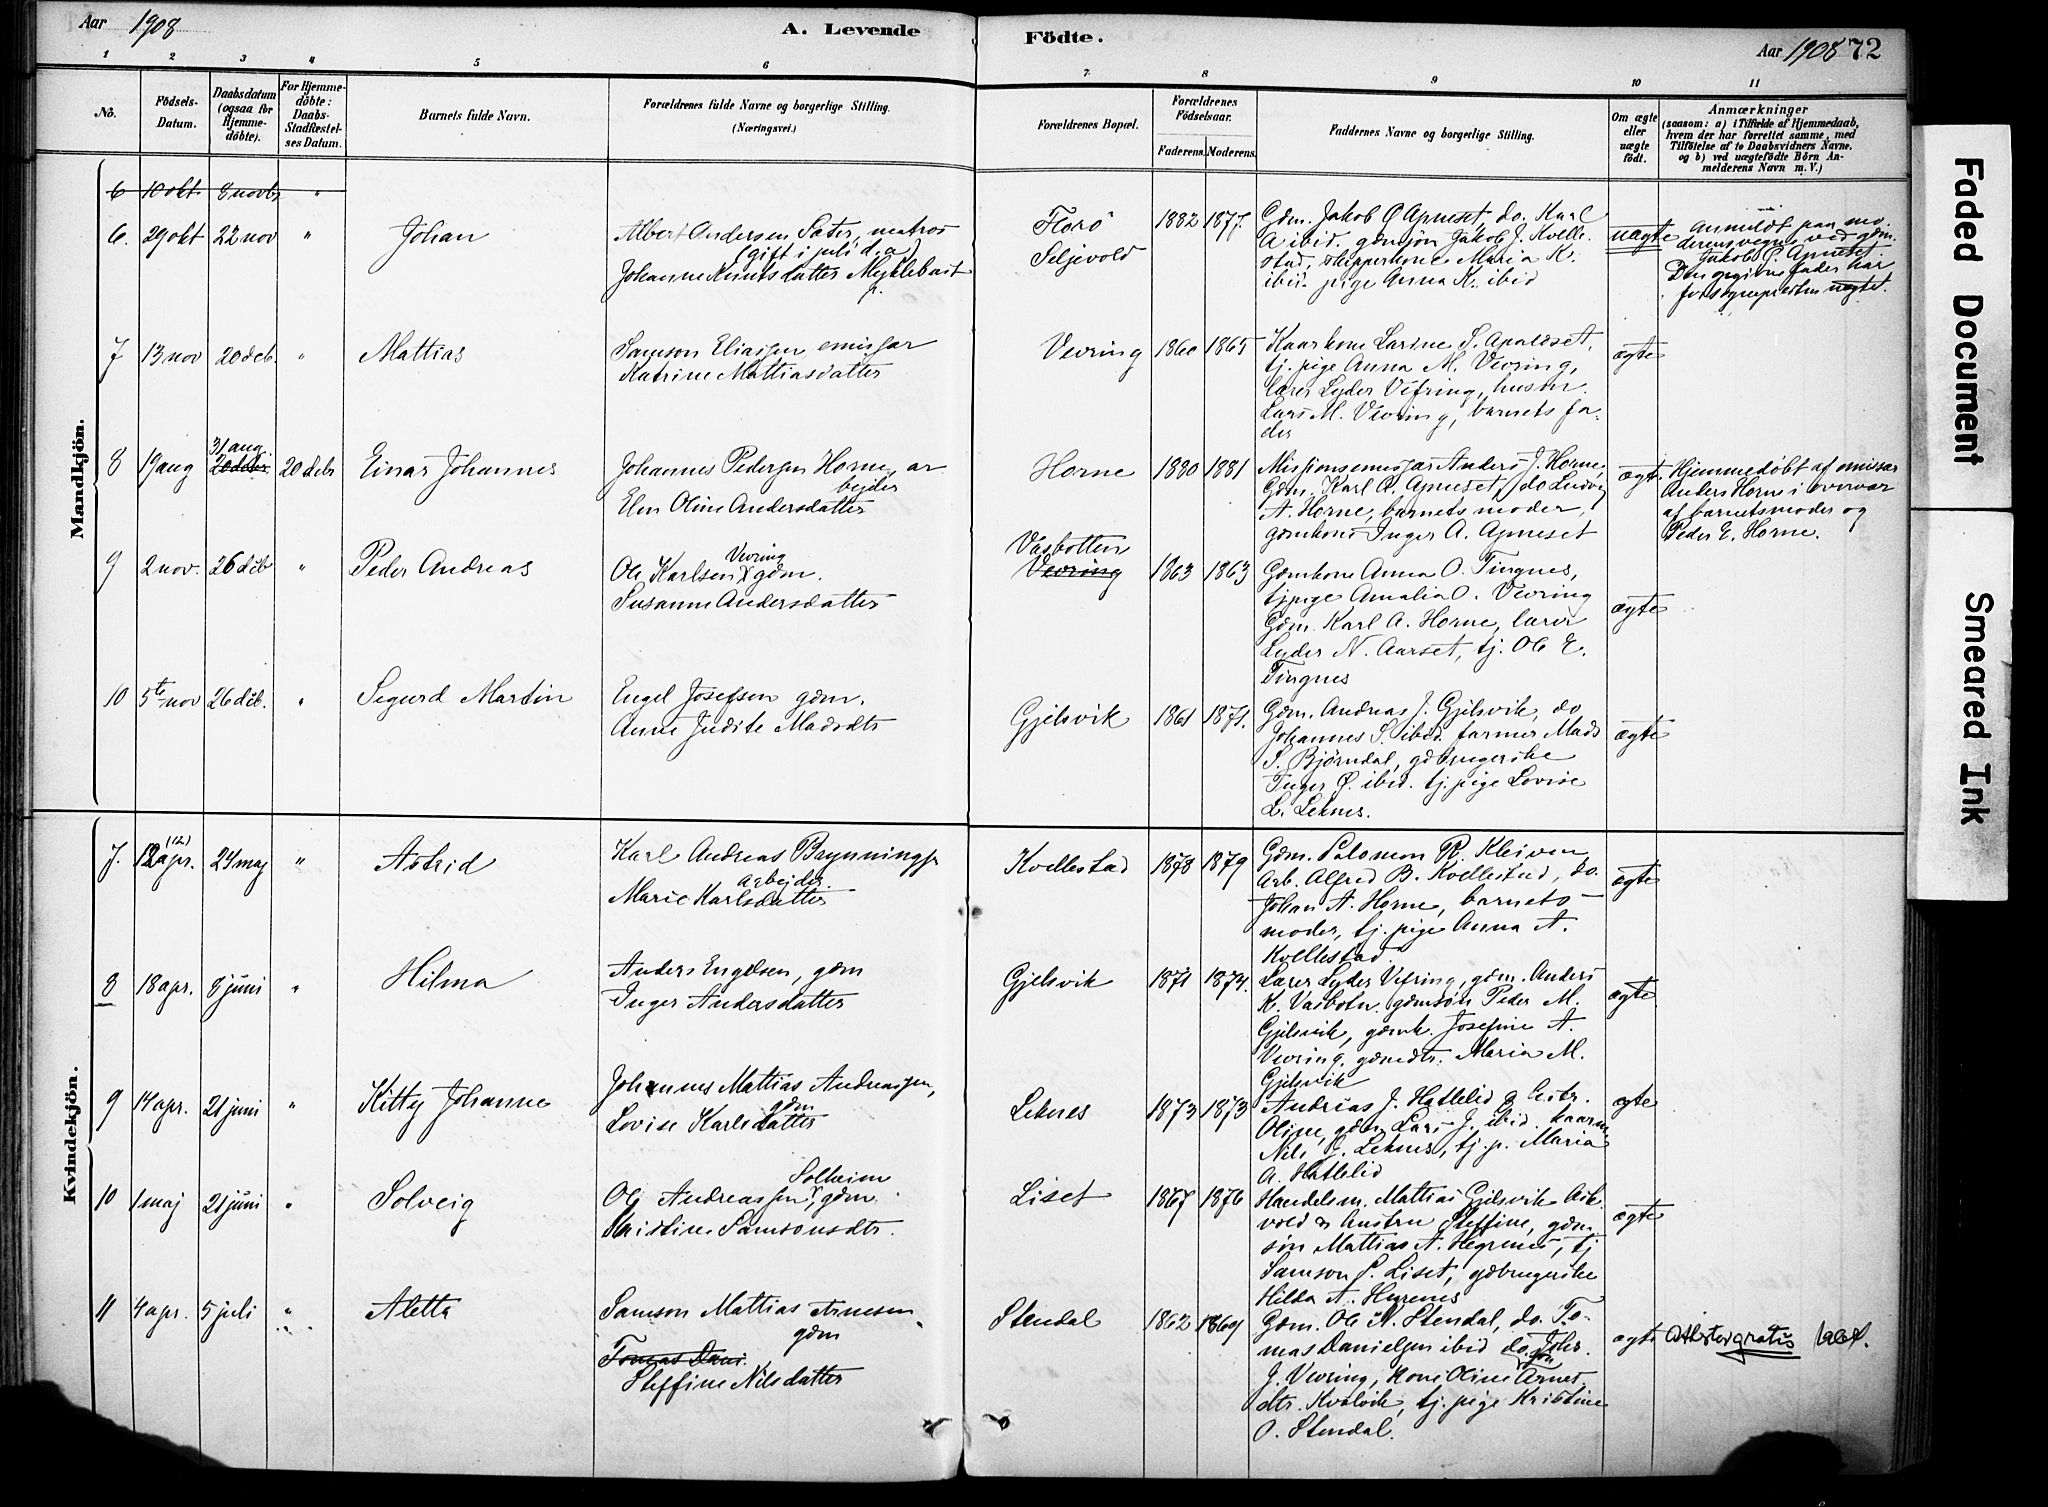 Aar 1908
A. Levende
Födte.
Aar 1908 72
1 2 3 4 5 6 7 8 9 10 11
No.
Födsels-
Datum.
Daabsdatum
(ogsaa for
Hjemme-
döbte).
For Hjemme-
döbte:
Daabs-
Stadfæstel-
ses Datum.
Barnets fulde Navn.
Forældrenes fulde Navne og borgerlige Stilling.
(Næringsvei.)
Forældrenes Bopæl.
Forældrenes
Födselsaar.
Faderens. Moderens.
Faddernes Navne og borgerlige Stilling.
Om ægte
eller
uægte
födt.
Anmærkninger
(saasom: a) i Tilfælde af Hjemmedaab,
hvem der har forrettet samme, med
Tilföielse af to Daabsvidners Navne,
og b) ved uægtefödte Börn An-
melderens Navn m. V.)
Mandkjön.
6 10 okt 8 novbr "
6. 29 okt 22 nov "
Johan
Albert Andersen Sater, matros
(gift i juli d. a)
Johanne Knutsdatter Myklebust
p.
Florö
Seljevold
1882 1877.
Gdm. Jakob O Apneset, do. Karl
A ibid. gdmsjön Jakob J. Kvelle-
stad, skipperkone Maria K.
ibid. pige Anna K. ibid
uægte
anmeldt paa mo-
derens vegne ved gdm.
Jakob O. Apneset.
Den opgivne fader har
for sogneprесten nægtet.
7 13 nov 20 deb "
Mattias
Samson Eliassen emissær
Katrine Mattiasdatter
Vevring
1860 1865
Kaarkone Larine S. Apaldset,
tj. pige Anna M. Vevring,
lærer Lyder Vefring, husm.
Lars M. Vevring, barnets fa-
der
ægte
8 19 aug 31 aug. 20 debr 20 debr
Einar Johannes
Johannes Pedersen Horne, ar
bejder
Elen Oline Andersdatter
Horne
1880 1881
Missionsemissær Anders J. Horne,
Gdm. Karl A. Apneset, do Ludvig
A. Horne, barnets moder,
gdmkone Inger A. Apneset
ægte.
Hjemmedöbt af emissær
Anders Horne i overvær
af barnets moder og
Peder E. Horne.
9 2 nov. 26 deb "
Peder Andreas
Vevring
Ole Karlsen gdm.
Susanne Andersdatter
Vasbotten
Vevring
1863 1863
Gdmkone Anna O. Tingnes,
tj pige Amalia O. Vevring
Gdm. Karl A. Horne, lærer
Lyder N. Aarset, tj. Ole E.
Tingnes
ægte
10 5te nov 26 deb. "
Sigurd Martin
Engel Josefsen gdm.
Anne Judite Madsdtr
Gjelsvik
1861 1871.
Gdm. Andreas J. Gjelsvik, do
Johannes S. ibid. farmer Mads
S. Bjørndal, gdbrugerske
Inger O. ibid. tj. pige Lovise
L. Leknes.
ægte
Kvindekjön.
7. 12 apr. (12) 24 maj "
Astrid
Karl Andreas Brynningsen
Arbejder.
Marie Karlsdatter
Kvellestad
1878 1879
Gdm. Salomon R. Kleiven,
Arb. Alfred B. Kvellestad, do.
Johan A. Horne, barnets
moder, tj. pige Anna A.
Kvellestad
ægte
8 18 apr. 8 juni "
Hilma
Anders Engelsen, gdm
Inger Andersdatter
Gjelsvik
1871 1874.
Lærer Lyder Vefring, gdm. Anders
K. Vasbotn. gdmsön Peder M.
Gjelsvik, gdmk. Josefine A.
Vevring. gdmdtr. Maria M.
Gjelsvik
ægte
9 14 apr. 21 juni "
Kitty Johanne
Johannes Mattias Andreassen,
gdm
Lovise Karlsdatter
Leknes
1873 1873
Andreas J. Hatlelid
Oline, gdm Lars J. ibid. kaarm.
Nils J. Leknes, tj. p. Maria
A. Hatlelid
ægte
10 1 maj 21 juni "
Solveig
Solheim
Ole Andreassen, gdm.
Kristine Samsonsdtr.
Liset
1867 1876
Handelsm. Mattias Gjelsvik Ask-
vold & hustru Steffine, gdm-
sön Mattias A. Hegrenes, tj
Samson P. Liset, gdbrugerske
Hilda A.
ægte
11 4 apr. 5 juli "
Aletta
Samson Mattias Arnesen,
gdm
Tomas Dani
Steffine Nilsdatter
Stendal
1862 1869
Gdm. Ole A. Stendal, do. To-
mas Danielsen ibid do. Joh.
J. Vevring, Kone Oline Arnes-
dtr. Kvalvik, tj. pige Kristine
O. Stendal.
ægte
Attest gratis
Faded Document
Smeared Ink